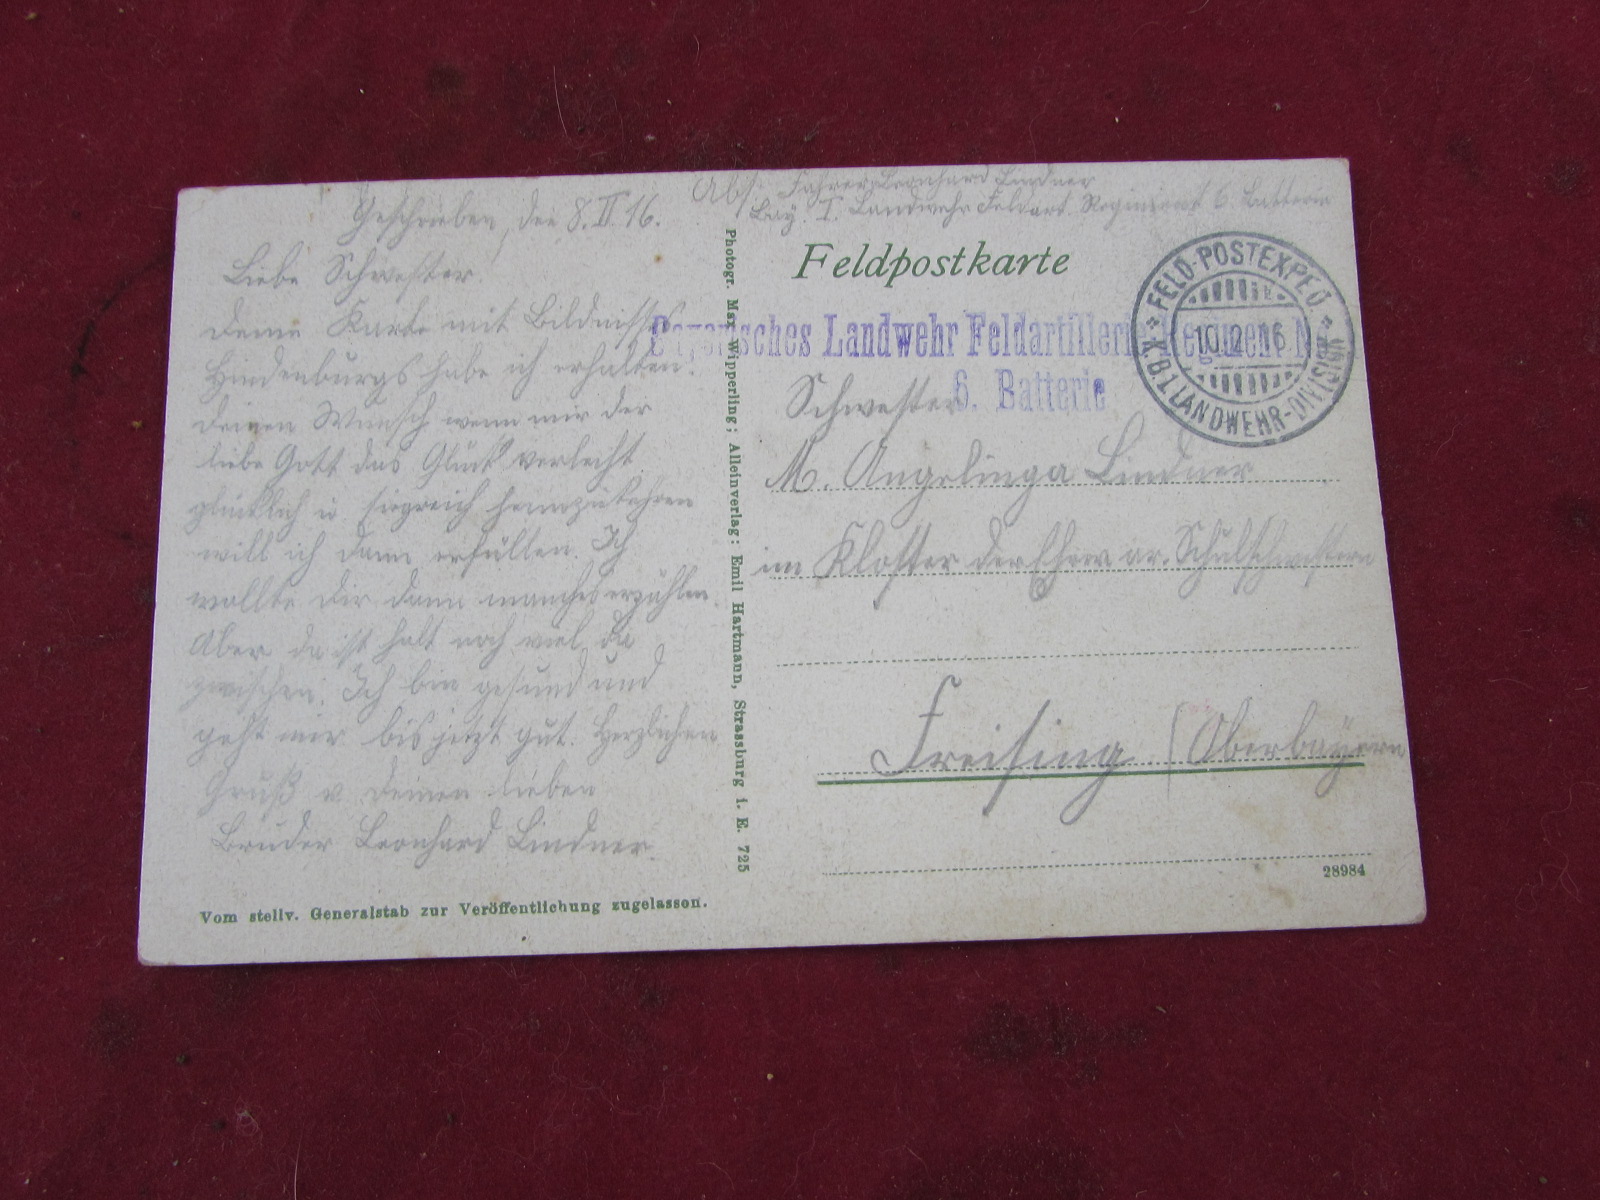 Geschrieben, den 8. II. 16.
Liebe Schwester.
Deine Karte mit Bildnisse
Hindenburgs habe ich erhalten.
deinen Wunsch wenn mir der
liebe Gott das Glück verleiht
glücklich u siegreich heimzukehren
will ich dann erfüllen. Ich
wollte dir dann manches erzählen.
Aber da ist halt noch viel da
zwischen. Ich bin gesund und
geht mir bis jetzt gut. Herzlichen
Gruß v deinen lieben
Bruder Leonhard Lindner.
Vom stellv. Generalstab zur Veröffentlichung zugelassen.
Photogr. Max Wipperling; Alleinverlag: Emil Hartmann, Strassburg i. E. 725
Abs. Fahrer Leonhard Lindner
Bay. I. Landwehr Feldart. Regiment 6. Batterie
Feldpostkarte
Bayerisches Landwehr Feldartillerie Regiment N
6. Batterie
FELD-POSTEXPED.
10.2.16
K.B.I.LANDWEHR-DIVISION
Schwester
M. Angelinga Lindner
im Kloster der Ehrw ar. Schulschwestern
Freising (Oberbayern
28984